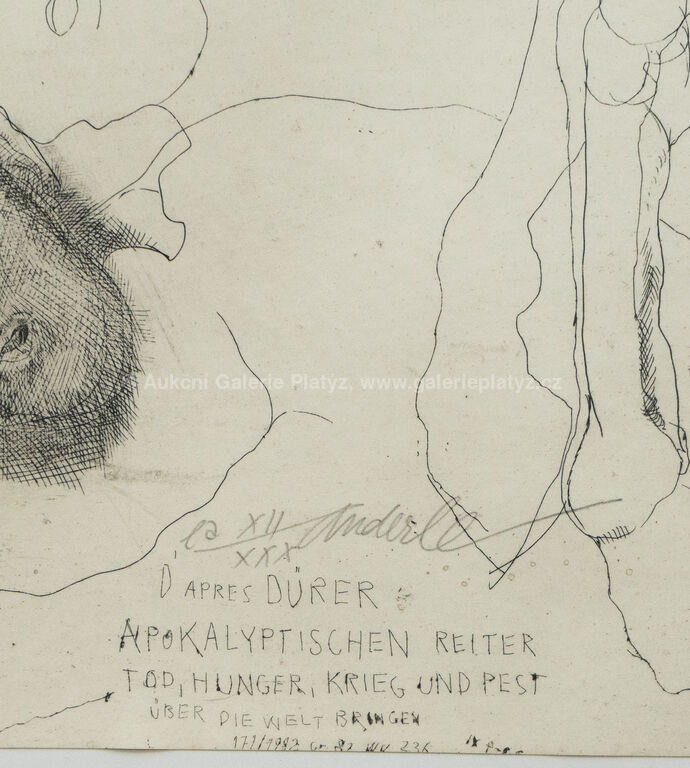 Aukcni Galerie Platýz, www.galerieplatyz.cz
ea XII/XXX Anderle
D'APRES DÜRER
APOKALYPTISCHEN REITER
TOD, HUNGER, KRIEG UND PEST
ÜBER DIE WELT BRINGEN
236